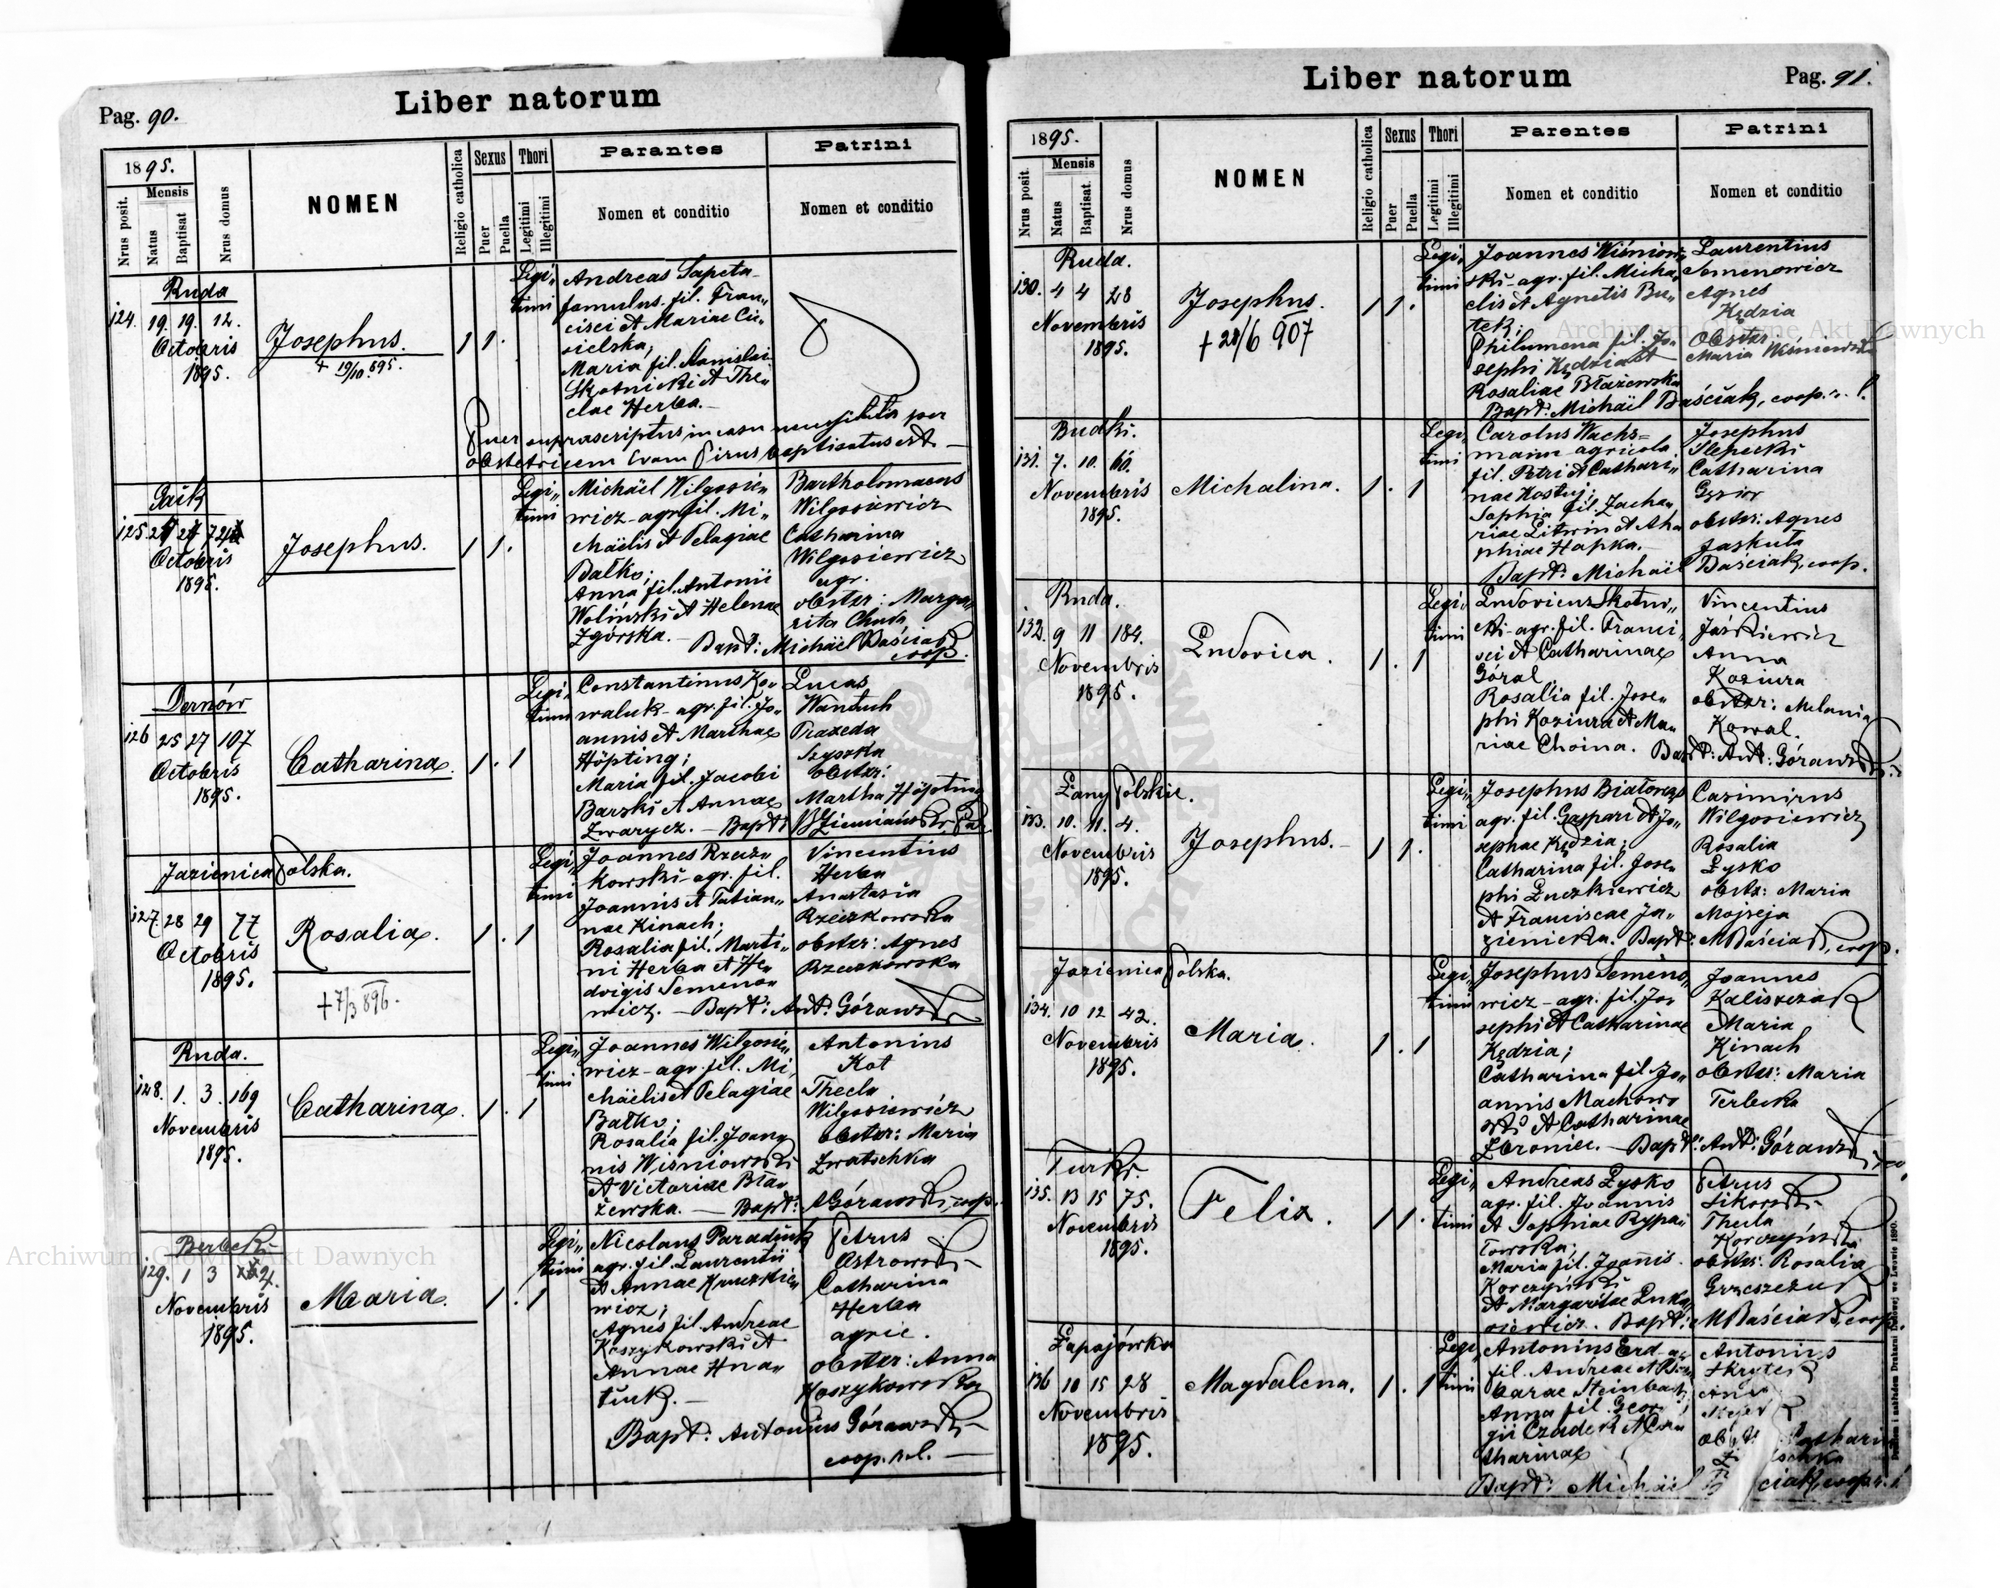 Pag. 90.
Liber natorum
1895.
Mensis
Nrus posit.
Natus
Baptisat
Nrus domus
NOMEN
Religio catholica
Sexus
Puer
Puella
Thori
Legitimi
Illegitimi
Parantes
Nomen et conditio
Patrini
Nomen et conditio
Ruda
124. 19. 19. 12.
Octobris
1895.
Josephus.
† 19/10 895.
1 1.
Legi„
timi
Andreas Sapeta
famulus. fil. Fran„
cisci et Mariae Cie„
sielska;
Maria fil. Stanislai
Skotnicki et The„
clae Herba.—
Puer suprascriptus in casu necessitatis per
obstetricem Evam Pirus baptisatus est —
125
Octobris
1895.
Josephus.
1 1.
Legi„
timi
Michaël Wilgosie„
wicz - agr. fil. Mi„
chäelis et Pelagiae
Bałko;
Anna fil. Antonii
Woliński et Helenae
Zgórska.—
Bartholomaeus
Wilgosiewicz
Catharina
Wilgosiewicz
agr.
obster: Marga„
rita Chuda
Bapt: Michäel Baściak
coop.
Dernów
126 25 27 107
Octobris
1895.
Catharina.
1. 1
Legi„
timi
Constantinus Ko„
waluk - agr. fil. Jo„
annis et Marthae
Höpting;
Maria fil. Jacobi
Barski et Annae
Zwarycz. — Bapt:
Lucas
Wantuch
Praxeda
Szyszka
obster:
Martha Höpting
Jazienica Polska.
127. 28 29 77
Octobris
1895.
Rosalia.
† 7/3 896.
1. 1
Legi„
timi
Joannes Rzecz„
kowski - agr. fil.
Joannis et Tatian„
nae Kinach;
Rosalia fil. Marti„
ni Herba et He„
dvigis Semeno„
wicz. — Bapt: Ant: Górawski
Vincentius
Herba
Anastasia
Rzeczkowska
obster: Agnes
Rzeczkowska
Ruda.
128. 1. 3. 169
Novembris
1895.
Catharina.
1. 1
Legi„
timi
Joannes Wilgosie„
wicz - agr. fil. Mi„
chäelis et Pelagiae
Bałko;
Rosalia fil. Joan„
nis Wiśniowski
et Victoriae Bła„
żewska. — Bapt:
Antonius
Kot
Thecla
Wilgosiewicz
obster: Maria
Zwatschka
AGórawski coop.
Berbeki
129. 1 3
Novembris
1895.
Maria.
1. 1
Legi„
timi
Nicolaus Paradziuk
agr. fil. Laurentii
et Annae Kruczkie„
wicz;
Agnes fil. Andreae
Koszykowski et
Annae Hna„
tiuk.—
Petrus
Ostrowski
Catharina
Herba
agric.
obster: Anna
Koszykowska
Bapt: Antonius Górawski
coop. r.l. —
Pag. 91.
Liber natorum
1895.
Mensis
Nrus posit.
Natus
Baptisat.
Nrus domus
NOMEN
Religio catholica
Sexus
Puer
Puella
Thori
Legitimi
Illegitimi
Parentes
Nomen et conditio
Patrini
Nomen et conditio
Ruda.
130. 4 4 28
Novembris
1895.
Josephus.
† 28/6 907
1 1.
Legi„
timi
Joannes Wiśniow„
ski - agr. fil. Micha„
elis et Agnetis Bu„
tek;
Philumena fil. Jo„
sephi Kędzia et
Rosaliae Błażewska
Laurentius
Semenowicz
Agnes
Kędzia
Obster:
Maria Wiśniewska
Bapt: Michäel Baściak, coop. r. l.
Budki.
131. 7. 10. 60.
Novembris
1895.
Michalina.
1. 1
Legi„
timi
Carolus Wachs=
mann - agricola
fil. Petri et Cathari„
nae Kostuj;
Sophia fil. Zacha„
riae Litwin et Aha„
phiae Hapka.—
Josephus
Ślepecki
Catharina
obster: Agnes
Jaskuła
Bapt: Michäel Baściak, coop.
Ruda.
132. 9 11 184.
Novembris
1895.
Ludovica.
1. 1
Legi„
timi
Ludovicus Skotni„
cki - agr. fil. Franci„
sci et Catharinae
Góral;
Rosalia fil. Jose„
phi Koziura et Ma„
riae Choina.
Vincentius
Jaśkiewicz
Anna
Koziura
obster: Melania
Kowal.
Bapt: Ant: Górawski
Łany Polskie.
133. 10. 11. 4.
Novembris
1895.
Josephus.
1 1.
Legi„
timi
Josephus Białowąs
agr. fil. Gaspari et Jo„
sephae Kędzia;
Catharina fil. Jose„
phi Łuczkiewicz
et Franciscae Ja„
zienicka. Bapt: MBaściak, coop.
Casimirus
Wilgosiewicz
Rosalia
Łysko
obster: Maria
Mojseja
Jazienica Polska.
134. 10 12 42.
Novembris
1895.
Maria.
1. 1
Legi„
timi
Josephus Semeno„
wicz - agr. fil. Jo„
sephi et Catharinae
Kędzia;
Catharina fil. Jo„
annis Machow„
ski et Catharinae
Zbroniec. — Bapt: Ant: Górawski
Joannes
Kaliszczak
Maria
Kinach
obster: Maria
Terlecka
Turki.
135. 13 15 75.
Novembris
1895.
Felix.
1 1.
Legi„
timi
Andreas Łysko
agr. fil. Joannis
et Sophiae Rypa„
łowska;
Maria fil. Joannis
Korczyński
et Margaritae Łuka„
siewicz. Bapt: MBaściak, coop.
Petrus
Sikorski
Thecla
Korczyńska
obster: Rosalia
Grzeszczuk
Łapajówka
136 10 15 28
Novembris
1895.
Magdalena.
1. 1
Legi„
timi
Antonius Erd. agr
fil. Andreae et Bar„
barae Steinbach;
Anna fil. Geor„
gii Czadek et Ca„
tharinae
Antonius
Skrytek
Catharin
Bapt: Michäel
ciak, coop. r. l.
Drukiem i nakładem Drukarni Ludowej we Lwowie 1890.
Archiwum Główne Akt Dawnych
Archiwum Główne Akt Dawnych